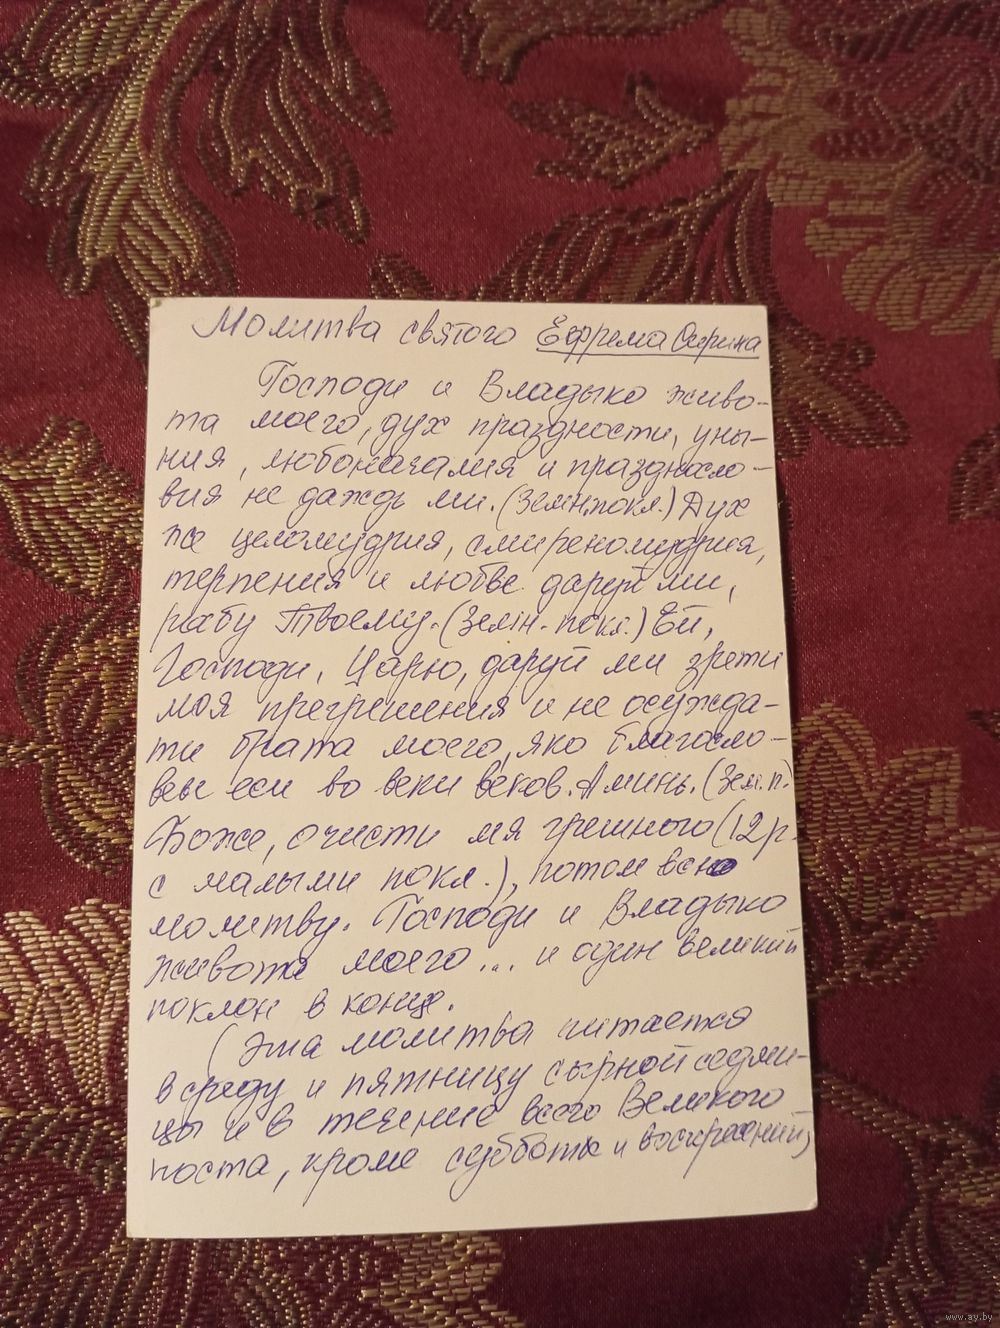 Молитва святого Ефрема Сирина
Господи и Владыко живо-
та моего, дух праздности, уны-
ния, любоначалия и праздносло-
вия не даждь ми. (Земн.покл.) Дух
же целомудрия, смиреномудрия,
терпения и любве даруй ми,
рабу Твоему. (Земн. покл.) Ей,
Господи, Царю, даруй ми зрети
моя прегрешения и не осужда-
ти брата моего, яко благосло-
вен еси во веки веков. Аминь. (Зем.п.)
Боже, очисти мя грешного (12 р.
с малыми покл.), потом всю
молитву. Господи и Владыко
живота моего... и один великий
поклон в конце.
(Эта молитва читается
в среду и пятницу сырной седми-
цы и в течение всего Великого
поста, кроме субботы и воскресений)
www.ay.by